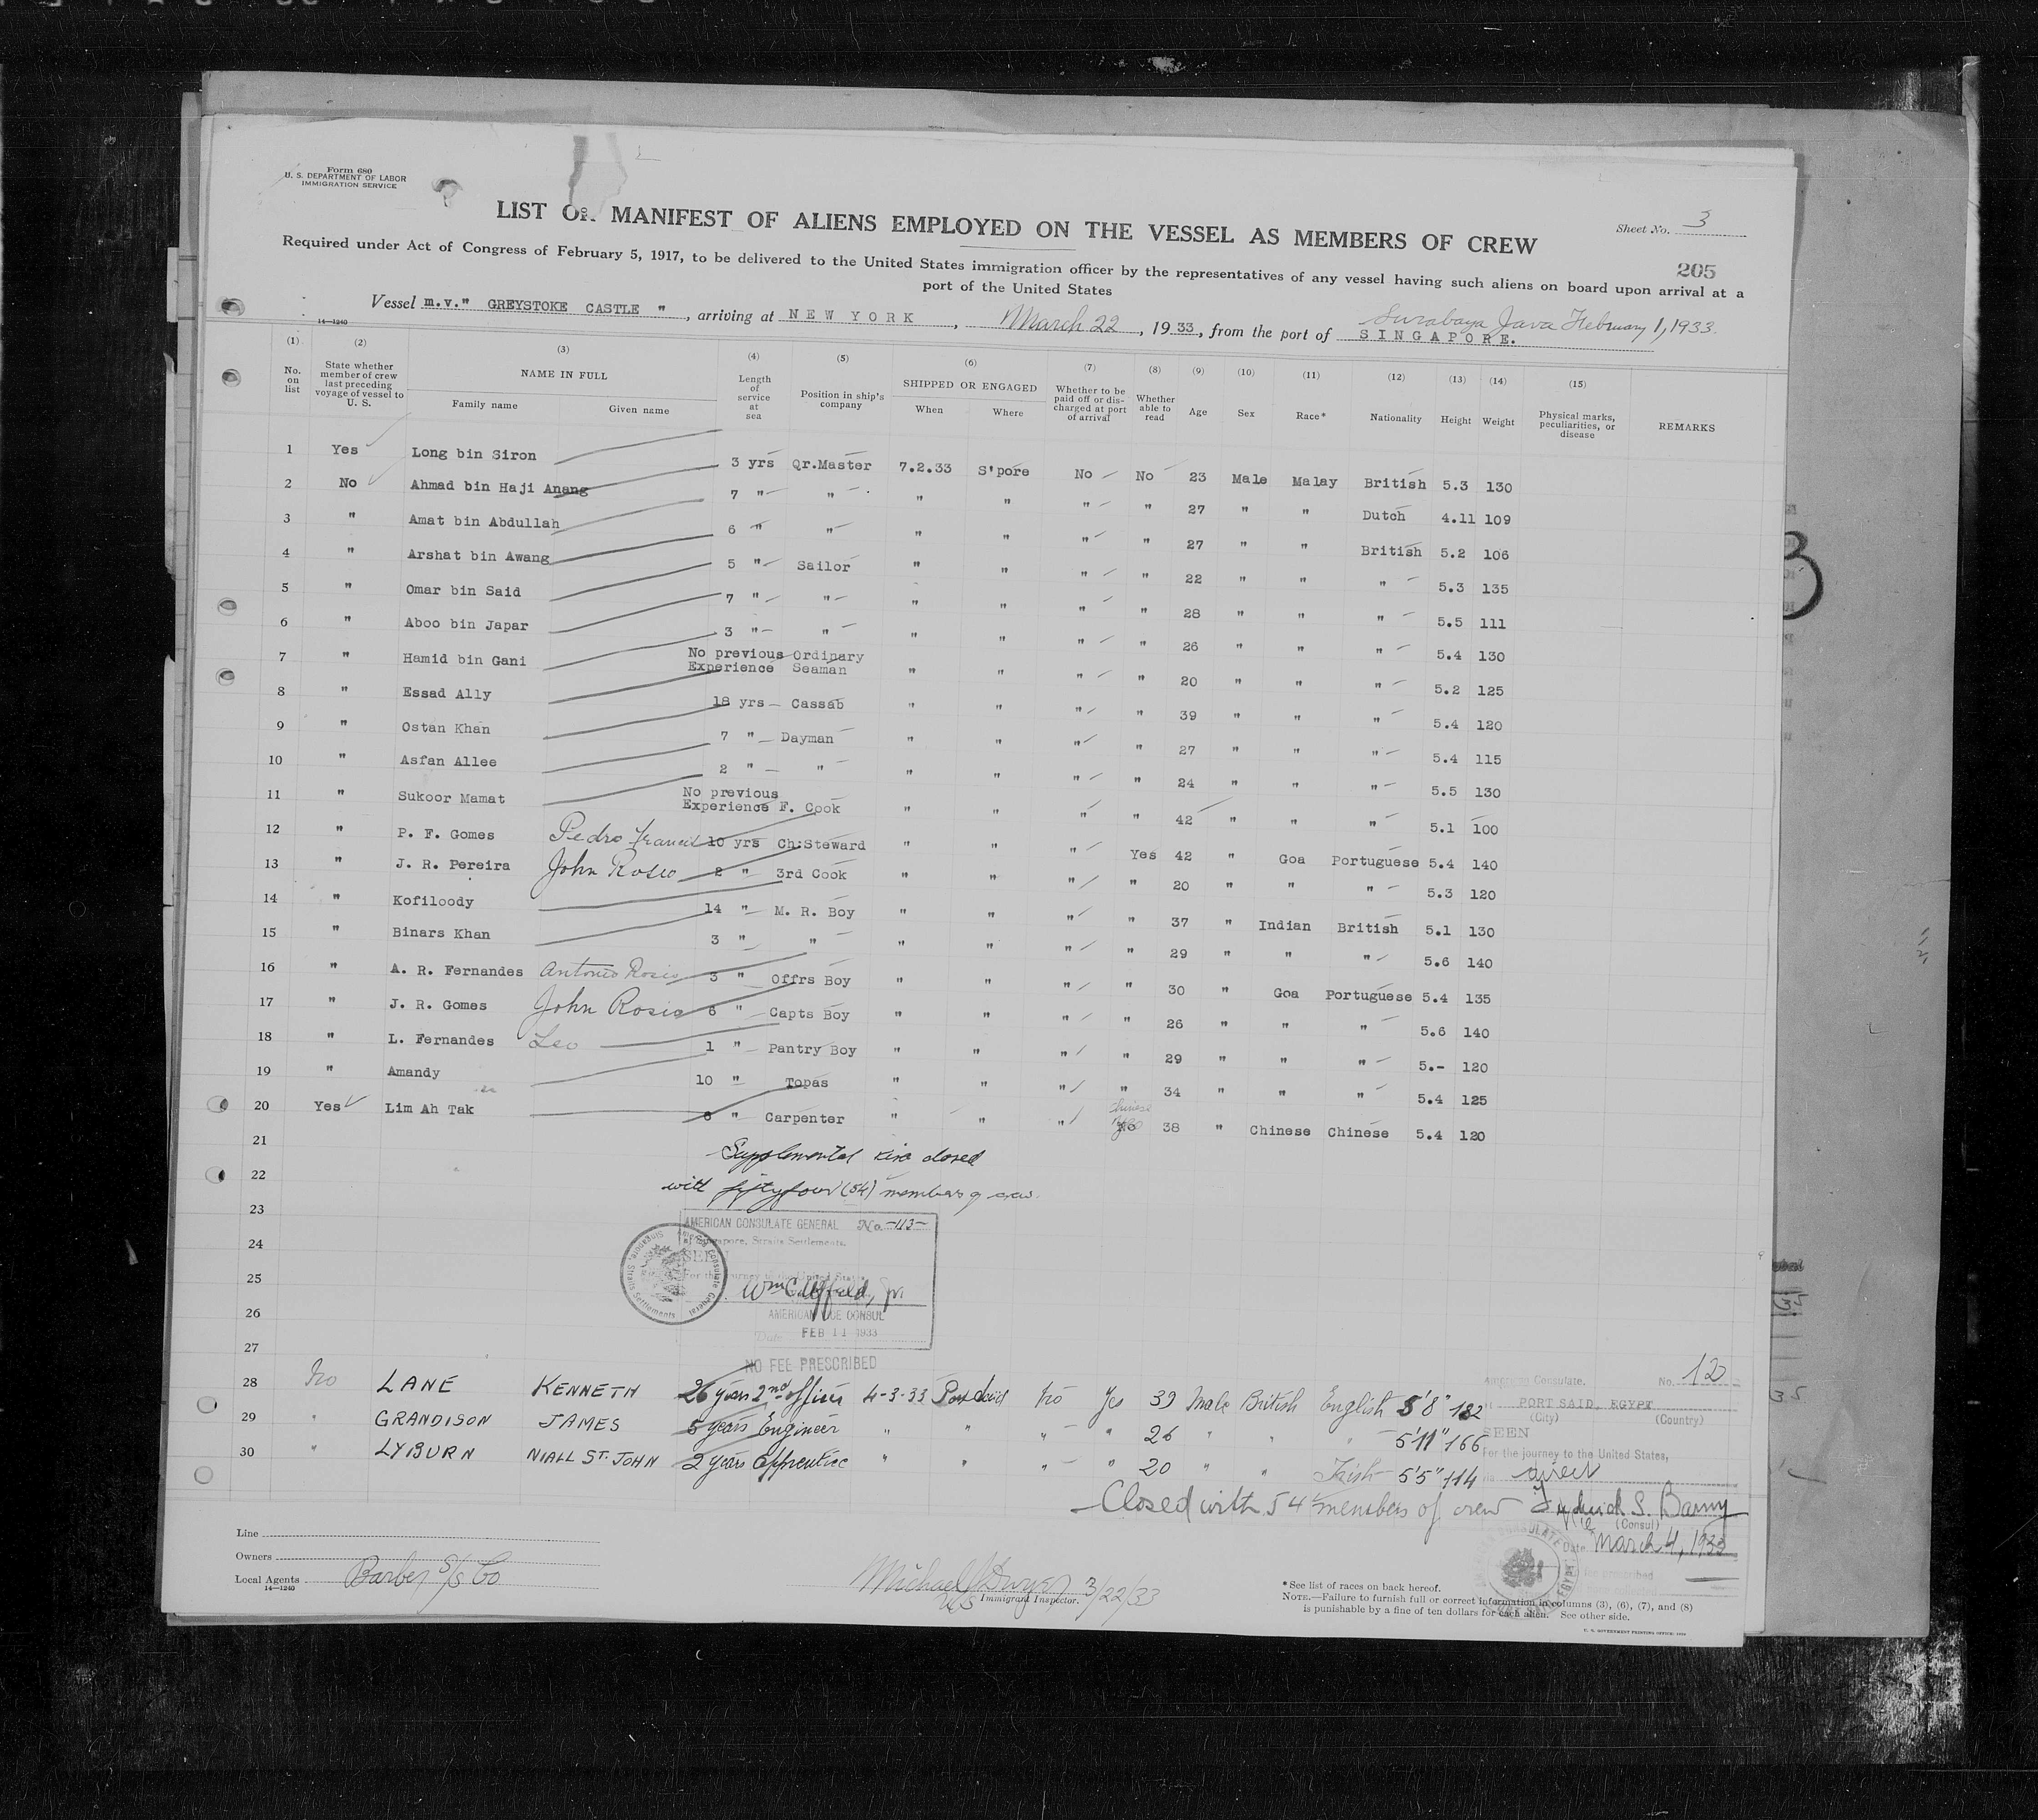 Form 680
U. S. DEPARTMENT OF LABOR
IMMIGRATION SERVICE
LIST OR MANIFEST OF ALIENS EMPLOYED ON THE VESSEL AS MEMBERS OF CREW
Sheet No. 3
205
Required under Act of Congress of February 5, 1917, to be delivered to the United States immigration officer by the representatives of any vessel having such aliens on board upon arrival at a
port of the United States
Vessel m.v." GREYSTOKE CASTLE ", arriving at NEW YORK, March 22, 1933, from the port of SINGAPORE.
Surabaya Java February 1, 1933.
14-1240
(1) (2) (3) (4) (5) (6) (7) (8) (9) (10) (11) (12) (13) (14) (15)
No. on list
State whether member of crew last preceding voyage of vessel to U. S.
NAME IN FULL
Family name Given name
Length of service at sea
Position in ship's company
SHIPPED OR ENGAGED
When Where
Whether to be paid off or discharged at port of arrival
Whether able to read
Age Sex Race* Nationality Height Weight
Physical marks, peculiarities, or disease
REMARKS
1 Yes Long bin Siron 3 yrs Qr.Master 7.2.33 S'pore No No 23 Male Malay British 5.3 130
2 No Ahmad bin Haji Anang 7 " " " " " " 27 " " Dutch 4.11 109
3 " Amat bin Abdullah 6 " " " " " " 27 " " British 5.2 106
4 " Arshat bin Awang 5 " Sailor " " " " 22 " " " 5.3 135
5 " Omar bin Said 7 " " " " " " 28 " " " 5.5 111
6 " Aboo bin Japar 3 " " " " " " 26 " " " 5.4 130
7 " Hamid bin Gani No previous Experience Ordinary Seaman " " " " 20 " " " 5.2 125
8 " Essad Ally 18 yrs Cassab " " " " 39 " " " 5.4 120
9 " Ostan Khan 7 " Dayman " " " " 27 " " " 5.4 115
10 " Asfan Allee 2 " " " " " " 24 " " " 5.5 130
11 " Sukoor Mamat No previous Experience F. Cook " " " " 42 " " " 5.1 100
12 " P. F. Gomes Pedro Francis 10 yrs Ch:Steward " " " Yes 42 " Goa Portuguese 5.4 140
13 " J. R. Pereira John Rosio 2 " 3rd Cook " " " " 20 " " " 5.3 120
14 " Kofiloody 14 " M. R. Boy " " " " 37 " Indian British 5.1 130
15 " Binars Khan 3 " " " " " " 29 " " " 5.6 140
16 " A. R. Fernandes Antonio Rosio 3 " Offrs Boy " " " " 30 " Goa Portuguese 5.4 135
17 " J. R. Gomes John Rosio 6 " Capts Boy " " " " 26 " " " 5.6 140
18 " L. Fernandes Leo 1 " Pantry Boy " " " " 29 " " " 5.- 120
19 " Amandy 10 " Topas " " " " 34 " " " 5.4 125
20 Yes Lim Ah Tak 8 " Carpenter " " " Chinese No 38 " Chinese Chinese 5.4 120
21 Supplemental visa closed
22 with fifty four (54) members of crew.
23
AMERICAN CONSULATE GENERAL No. -113-
at Singapore, Straits Settlements.
24
SEEN
25
For the journey to the United States
26
AMERICAN VICE CONSUL
Date FEB 11 1933
27
NO FEE PRESCRIBED
American Consulate General Singapore, Straits Settlements
28 No LANE KENNETH 26 years 2nd officer 4-3-33 Port Said No Yes 39 Male British English 5'8" 182
29 " GRANDISON JAMES 5 years Engineer " " " " 26 " " " 5'11" 166
30 " LYBURN NIALL ST. JOHN 2 years Apprentice " " " " 20 " " Irish 5'5" 114
American Consulate. No. 120
PORT SAID, EGYPT
(City) (Country)
SEEN
For the journey to the United States,
direct
Closed with 54 members of crew
(Consul)
Date March 4, 1933
Line
Owners
Local Agents Barber S/S Co
14-1240
Michael J Dwyer 3/22/33
Immigrant Inspector.
*See list of races on back hereof.
NOTE.—Failure to furnish full or correct information in columns (3), (6), (7), and (8)
is punishable by a fine of ten dollars for each alien. See other side.
U. S. GOVERNMENT PRINTING OFFICE